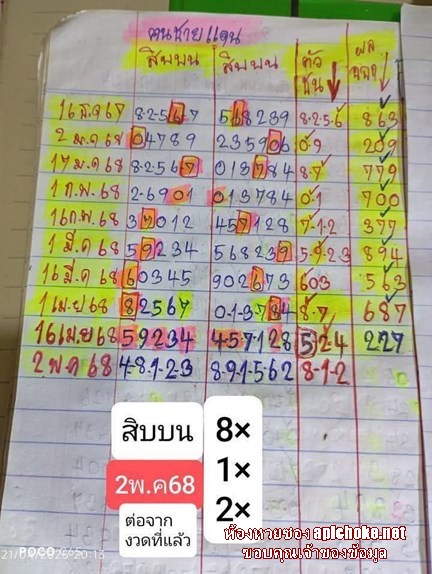 คนชายแดน
สิบบน สิบบน ตัวชน ผลออก
16 ธ.ค 67 8-2-5-6-7 568239 8-2-5-6 863
2 ม.ค 68 04789 235906 0-9 209
17 ม.ค 68 8-2567 013784 8-7 779
1 ก.พ. 68 2-6901 013784 0-1 700
16 ก.พ. 68 37012 457128 7-1-2 377
1 มี.ค 68 59234 568239 5-9-2-3 894
16 มี.ค 68 60345 902673 603 563
1 เม.ย 68 82567 0-1-3784 8-7 687
16 เม.ย 68 59234 4-57-128 5-2-4 227
2 พ.ค 68 4-8-1-2-3 8-9-1-5-62 8-1-2
สิบบน 8×
2พ.ค68 1×
ต่อจาก 2×
งวดที่แล้ว
ห้องหวยซอง apichoke.net
ขอบคุณเจ้าของข้อมูล